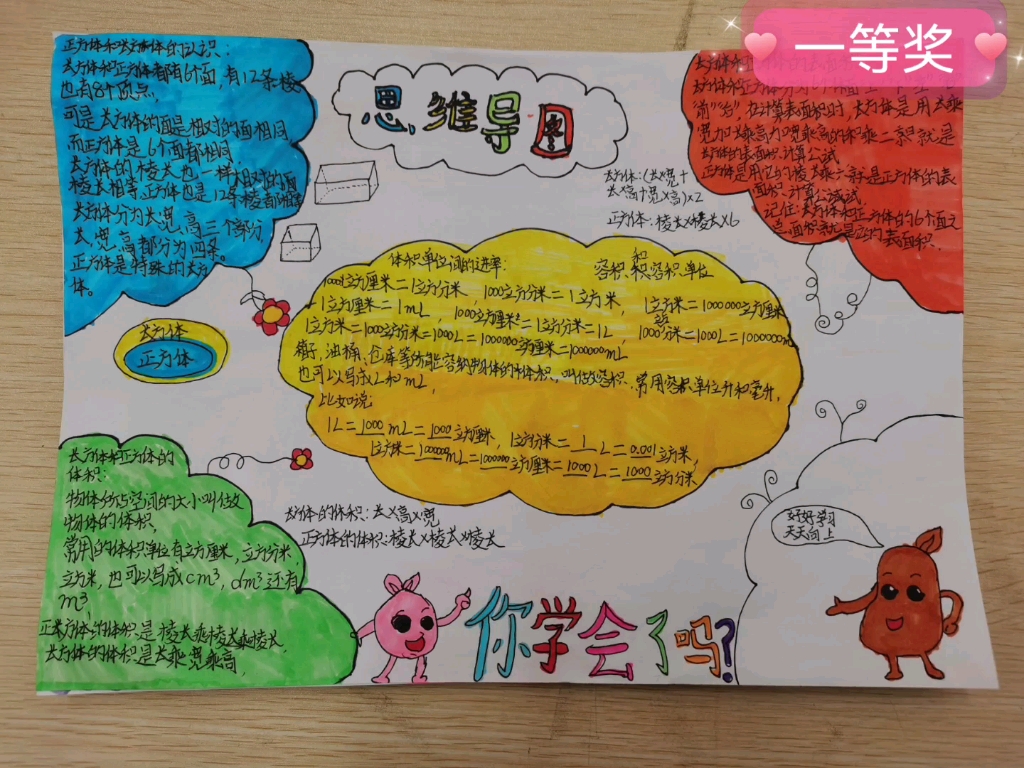 一等奖
思维导图
正方体和长方体的认识:
长方体和正方体都有6个面,有12条棱
也有8个顶点,
可是长方体的面是相对的面相同
而正方体是6个面都相同
长方体的棱长也一样相对的面
棱长相等正方体也是12条棱者相等
长方体分为长、宽、高三个部分,
长、宽、高都分为四条。
正方体是特殊的长方
体。
在计算表面积时,长方体是用长乘
宽加长乘高加宽乘高的和乘二就是
长方体的表面积计算公试
正方体是用它的棱长乘六就是正方体的表
面积计算公试
记住:长方体和正方体的6个面之
是面积就是它的表面积.
长方体:(长×宽+
长×高+宽×高)×2
正方体:棱长×棱长×6
长方体
正方体
体积单位间的进率:
容积和容积单位
1000立方厘米=1立方分米,1000立方分米=1立方米,1立方米=1000000立方厘米
1立方厘米=1mL,1000立方厘米=1立方分米=1L
1000立方分米=1000L=1000000mL
1立方米=1000立方分米=1000L=1000000立方厘米=1000000mL
箱子,油桶,仓库等所能容纳物体的体积,叫做容积,常用容积单位升和毫升,
也可以写成L和mL,
比如说:
1L=1000mL=1000立方厘米,1立方分米=1L=0.001立方米,
1立方米=1000000mL=1000000立方厘米=1000L=1000立方分米
长方体和正方体的
体积:
物体所占空间的大小叫做
物体的体积.
常用的体积单位有立方厘米,立方分米,
立方米,也可以写成cm³,dm³还有
m³,
正方体的体积是棱长乘棱长乘棱长,
长方体的体积是长乘宽乘高,
长方体的体积:长×高×宽
正方体的体积:棱长×棱长×棱长
好好学习
天天向上
你学会了吗?